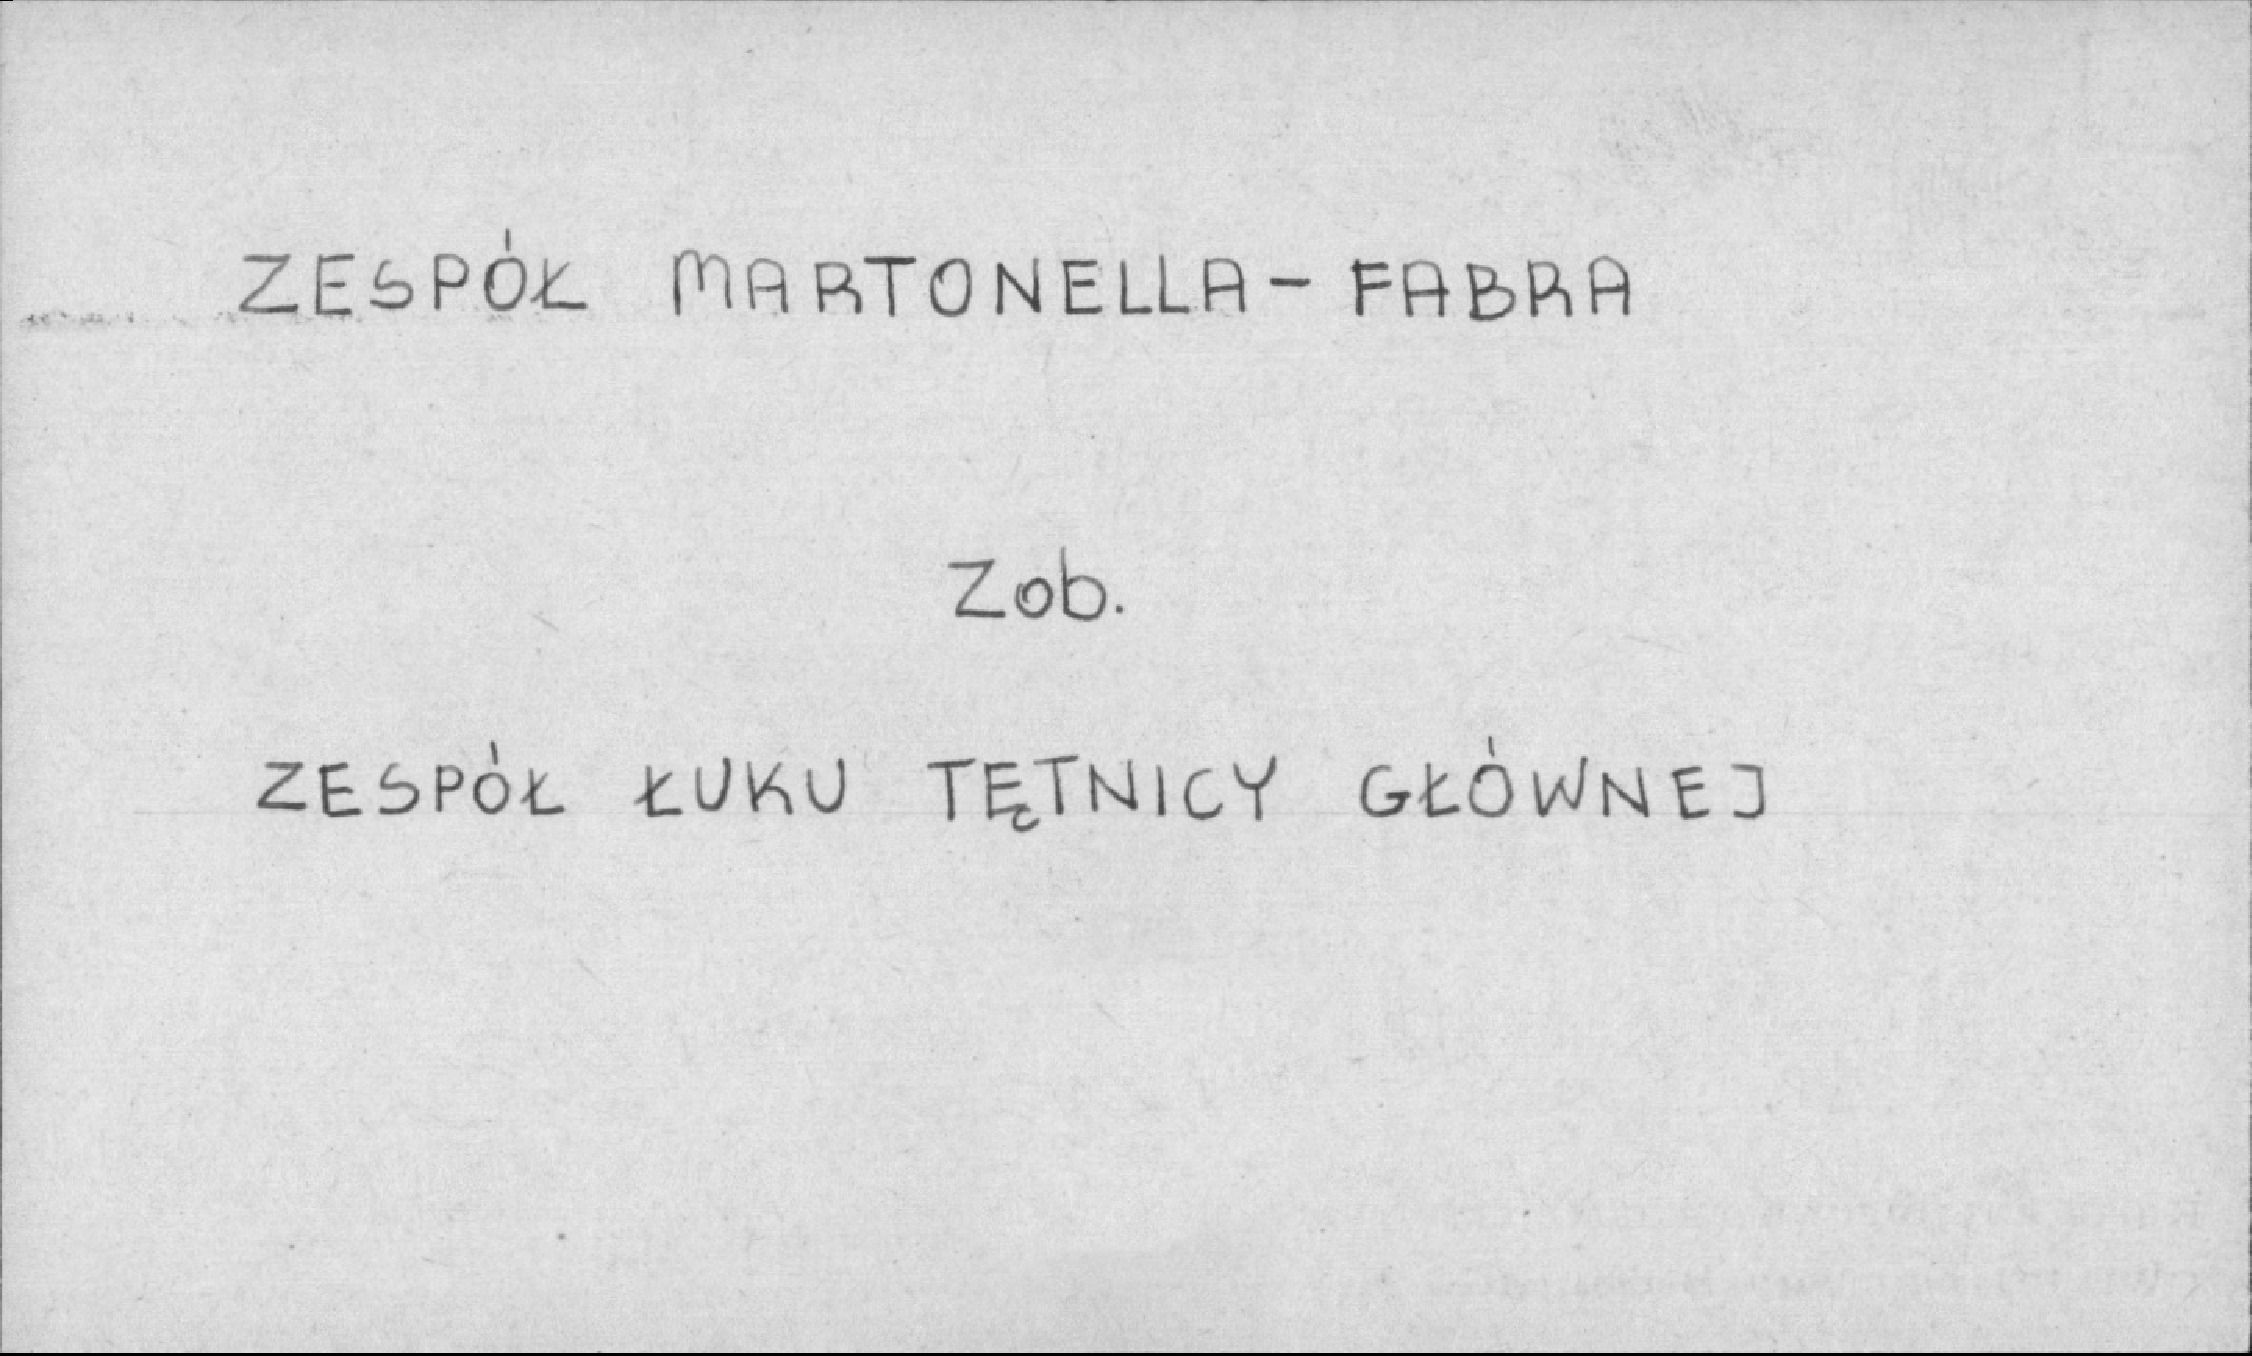 ZESPÓŁ MARTONELLA - FABRA
Zob.
ZESPÓŁ ŁUKU TĘTNICY GŁÓWNEJ